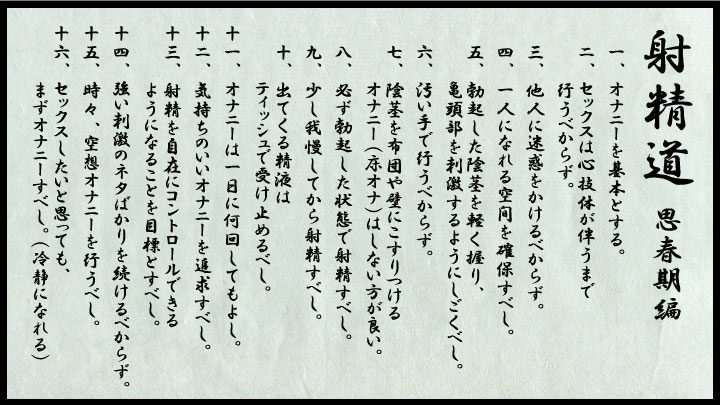 射精道 思春期編
一、オナニーを基本とする。
二、セックスは心技体が伴うまで
行うべからず。
三、他人に迷惑をかけるべからず。
四、一人になれる空間を確保すべし。
五、勃起した陰茎を軽く握り、
亀頭部を刺激するようにしごくべし。
六、汚い手で行うべからず。
七、陰茎を布団や壁にこすりつける
オナニー(床オナ)はしない方が良い。
八、必ず勃起した状態で射精すべし。
九、少し我慢してから射精すべし。
十、出てくる精液は
ティッシュで受け止めるべし。
十一、オナニーは一日に何回してもよし。
十二、気持ちのいいオナニーを追求すべし。
十三、射精を自在にコントロールできる
ようになることを目標とすべし。
十四、強い刺激のネタばかりを続けるべからず。
十五、時々、空想オナニーを行うべし。
十六、セックスしたいと思っても、
まずオナニーすべし。(冷静になれる)